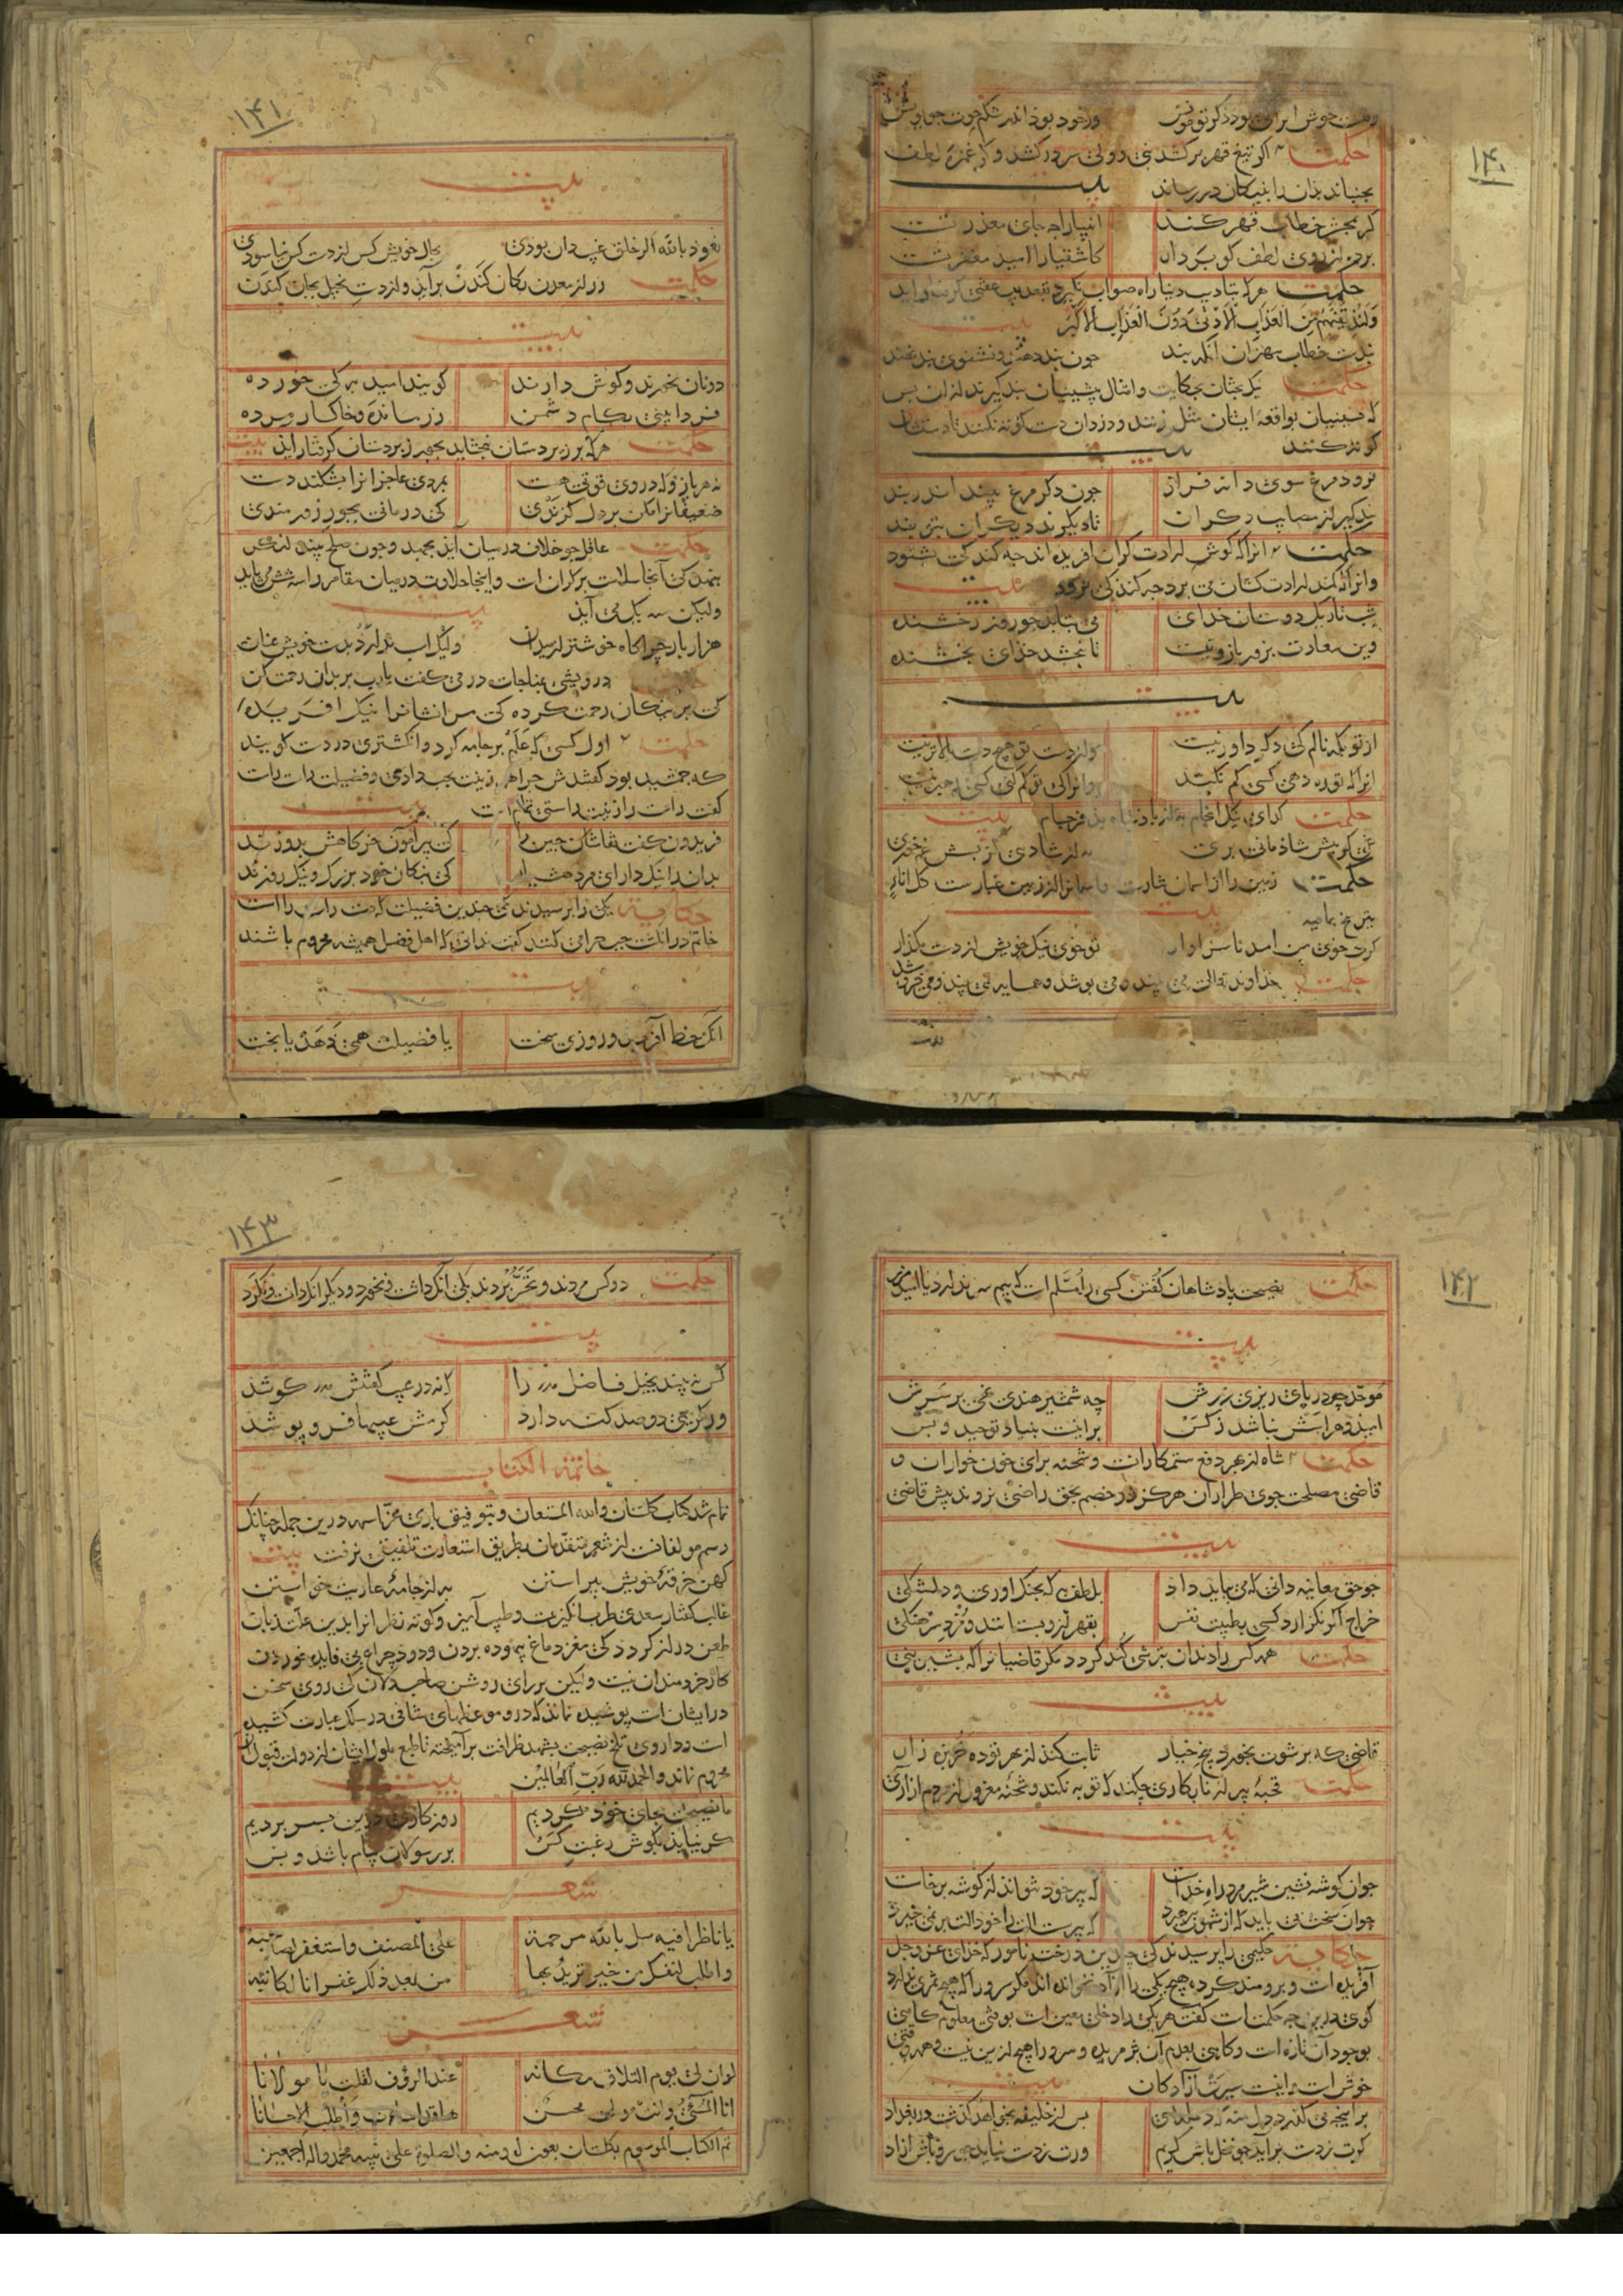 ۱۴۰
وقت خوش ابرانی بود ذکر تو خوش ورخود بود اندر شکم چون
حکمت اگر تیغ قهر برکشد نبی و ولی سر درکشد و اگر غمزه لطف
بجنباند بدان را بنیکان دررساند بیت
گر بمحشر خطاب قهر کند انبیا را چه جای معذرتست
پرده از روی لطف گو بردار کاشقیا را امید مغفرتست
حکمت هرکه بتادیب دنیا راه صواب نگیرد بتعذیب عقبی گرفتار آید
وَلَنُذِيقَنَّهُمْ مِنَ الْعَذَابِ الْأَدْنَى دُونَ الْعَذَابِ الْأَكْبَرِ بیت
پندست خطاب مهتران آنگه بند چون پند دهند و نشنوی بند نهند
حکمت نیک بختان بحکایت و امثال پیشینیان پند گیرند از ان پس
که پسینیان بواقعه ایشان مثل زنند و دزدان دست کوته نکنند تا دستشان
کوته کنند بیت
نرود مرغ سوی دانه فراز چون دگر مرغ بیند اندر بند
پند گیر از مصایب دگران تا نگیرند دیگران بتو پند
حکمت انرا که گوش ارادت گران افریده اند چه کند کی بشنود
وانرا که کمند ارادت کشان می برد چه کند کی نرود بیت
شب تاریک دوستان خدای می بتابد چو روز رخشنده
وین سعادت بزور بازو نیست تا نبخشد خدای بخشنده
بیت
از تو بکه نالم کی دگر داور نیست ولز دست تو هیچ دست بالاتر نیست
انرا که تو ره دهی کسی گم نکند وانرا کی تو گم کنی کسی رهبر نیست
حکمت گدای نیک انجام به از پادشاه بد فرجام بیت
غمی کز پیش شادمانی بری به از شادی کز پسش غم خوری
حکمت زمین را از اسمان نثارست و اسمانرا از زمین غبارست کل اناء
یترشح بما فیه بیت
گرت خوی من امد ناسزاوار تو خوی نیک خویش از دست مگذار
حکمت خداوند تعالی می بیند و می پوشد و همسایه نمی بیند و می خروشد
۱۴۱
بیت
نعوذ بالله اگر خلق غیب دان بودی بحال خویش کس از دست کس نیاسودی
حکمت زر از معدن بکان کندن برآید و از دست بخیل بجان کندن
بیت
دونان نخورند و گوش دارند گویند امید به کی خورده
فردا بینی بکام دشمن زر مانده و خاکسار مرده
حکمت هرکه بر زیردستان نبخشاید بجور زبردستان گرفتار اید بیت
نه هر بازو که در وی قوتی هست بمردی عاجزانرا بشکند دست
ضعیفانرا مکن بر دل گزندی کی درمانی بجور زورمندی
حکمت عاقل چو خلاف در میان اید بجهد و چون صلح بیند لنگر
بنهد کی آنجا سلامت بر کران است و اینجا حلاوت در میان مقامر را سه شش می باید
ولیکن سه یک می آید بیت
هزار بار چراگاه خوشتر از میدان ولیک اسب ندارد بدست خویش عنان
حکمت درویشی بمناجات در می گفت یارب بر بدان رحمت کن
کی بر نیکان رحمت کرده کی مر ایشانرا نیک افریده
حکمت اول کسی که علم بر جامه کرد و انگشتری در دست گویند
که جمشید بود گفتندش چرا همه زینت بچپ دادی و فضیلت راست راست
گفت راست را زینت راستی تمام است بیت
فریدون گفت نقاشان چین را کی پیرامون خرگاهش بدوزند
بدان را نیک دار ای مرد هشیار کی نیکان خود بزرگ و نیک روزند
حکایت یکی را پرسیدند کی چندین فضیلت که دست راست را است
خاتم در انگشت چپ چرا می کنند گفت ندانی که اهل فضل همیشه محروم باشند
بیت
انک خط آفرید و روزی سخت یا فضیلت همی دهد یا بخت
۱۴۲
حکمت نصیحت پادشاهان گفتن کسی را مسلم است که بیم سر ندارد یا امید زر
بیت
موحد چه در پای ریزی زرش چه شمشیر هندی نهی بر سرش
امید و هراسش نباشد ز کس بر اینست بنیاد توحید و بس
حکمت شاه از بهر دفع ستمکارانست و شحنه برای خون خواران و
قاضی مصلحت جوی طراران هرگز دو خصم بحق راضی نروند پیش قاضی
بیت
چو حق معاینه دانی که می بباید داد بلطف به که بجنک اوری و دلتنگی
خراج اگر نگزارد کسی بطیبت نفس بقهر از و بستانند و مزد سرهنگی
حکمت همه کس را دندان بترشی کند گردد مگر قاضیانرا که بشیرینی
بیت
قاضی که برشوت بخورد پنج خیار ثابت کند از بهر تو ده خربزه زار
حکمت قحبه پیر از نابکاری چکند که توبه نکند و شحنه معزول از مردم ازاری
بیت
جوان گوشه نشین شیر مرد راه خداست که پیر خود نتواند ز گوشه برخاست
جوان سخت می باید که از شهوت بپرهیزد که پیر سست را خود الت بر نمی خیزد
حکایت حکیمی را پرسیدند کی چندین درخت نامور که خدای عز و جل
آفریده است و برومند کرده هیچ یکی را آزاد نخوانده اند مگر سرو را که هیچ ثمری ندارد
گوی درین چه حکمتست گفت هر یکی را دخلی معین است بوقتی معلوم گاهی
بوجود آن تازه است و گاهی بعدم آن پژمریده و سرو را هیچ ازین نیست و همه وقتی
خوش است و اینست سیرت آزادگان بیت
برانچه می گذرد دل منه که دجله بسی پس از خلیفه بخواهد گذشت در بغداد
گرت ز دست برآید چو نخل باش کریم ورت ز دست نیاید چو سرو باش ازاد
۱۴۳
حکمت دو کس مردند و تحسر بردند یکی آنک داشت و نخورد و دیگر انک دانست و نکرد
بیت
کس نه بیند بخیل فاضل را که نه در عیب گفتنش کوشد
ور کریمی دو صد گنه دارد کرمش عیبها فرو پوشد
خاتمة الکتاب
تمام شد کتاب گلستان والله المستعان و بتوفیق باری عز اسمه درین جمله چنانک
رسم مولفانست از شعر متقدمان بطریق استعارت تلفیقی نرفت بیت
کهن خرقه خویش پیراستن به از جامه عاریت خواستن
غالب گفتار سعدی طرب انگیزست و طیبت آمیز و کوته نظرانرا بدین علت زبان
طعن دراز گردد کی مغز دماغ بیهوده بردن و دود چراغ بی فایده خوردن
کار خردمندان نیست ولیکن بر رای روشن صاحبدلان کی روی سخن
در ایشان است پوشیده نماند که در موعظهای شافی در سلک عبارت کشیده
است و داروی تلخ نصیحت بشهد ظرافت برآمیخته تا طبع ملول ایشان از دولت قبول
محروم نماند والحمد لله رب العالمین بیت
ما نصیحت بجای خود کردیم روزگاری درین بسر بردیم
گر نیاید بگوش رغبت کس بر رسولان پیام باشد و بس
شعر
یا ناظرا فیه سل بالله مرحمة علی المصنف واستغفر لصاحبه
واطلب لنفسک من خیر تریدُ بها من بعد ذلک غفرانا لکاتبه
شعر
لو ان لی یوم التلاق مکانة عند الرؤف لقلت یا مولانا
انا المسیُٔ وانت مولی محسن ها قد اسأت وأطلب الاحسانا
تم الکتاب الموسوم بکلستان بعون الله ومنه والصلوة علی نبیه محمد واله اجمعین